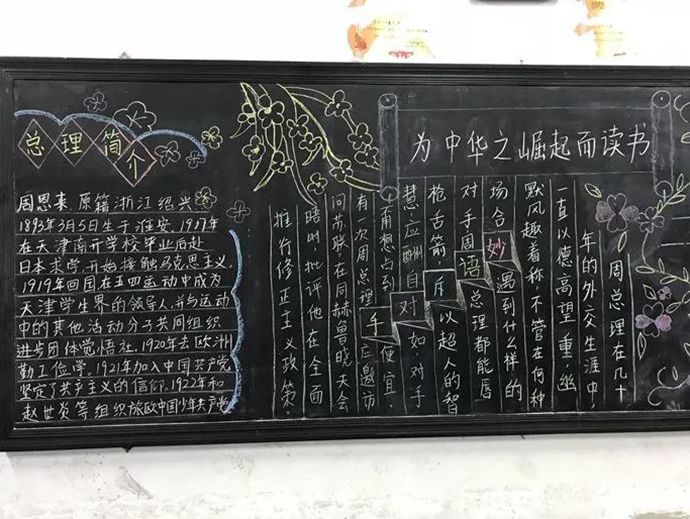 总理简介
周恩来,原籍浙江绍兴。
1893年3月5日生于淮安,1917年
在天津南开学校毕业后赴
日本求学,开始接触马克思主义。
1919年回国在五四运动中成为
天津学生界的领导人,并与运动
中的其他活动分子共同组织
进步团体觉悟社。1920年去欧洲
勤工俭学。1921年加入中国共产党
坚定了共产主义的信仰。1922年和
赵世炎等组织旅欧中国少年共产党
为中华之崛起而读书
妙语斥对手
周总理在几十
年的外交生涯中,
一直以德高望重、幽
默风趣着称,不管在何种
场合遇到什么样的
对手周总理都能唇
枪舌箭以超人的智
慧,应酬自如,对手
甭想占到便宜。
有一次周总理应邀访
问苏联,在同赫鲁晓夫会
晤时,批评他在全面
推行修正主义政策。